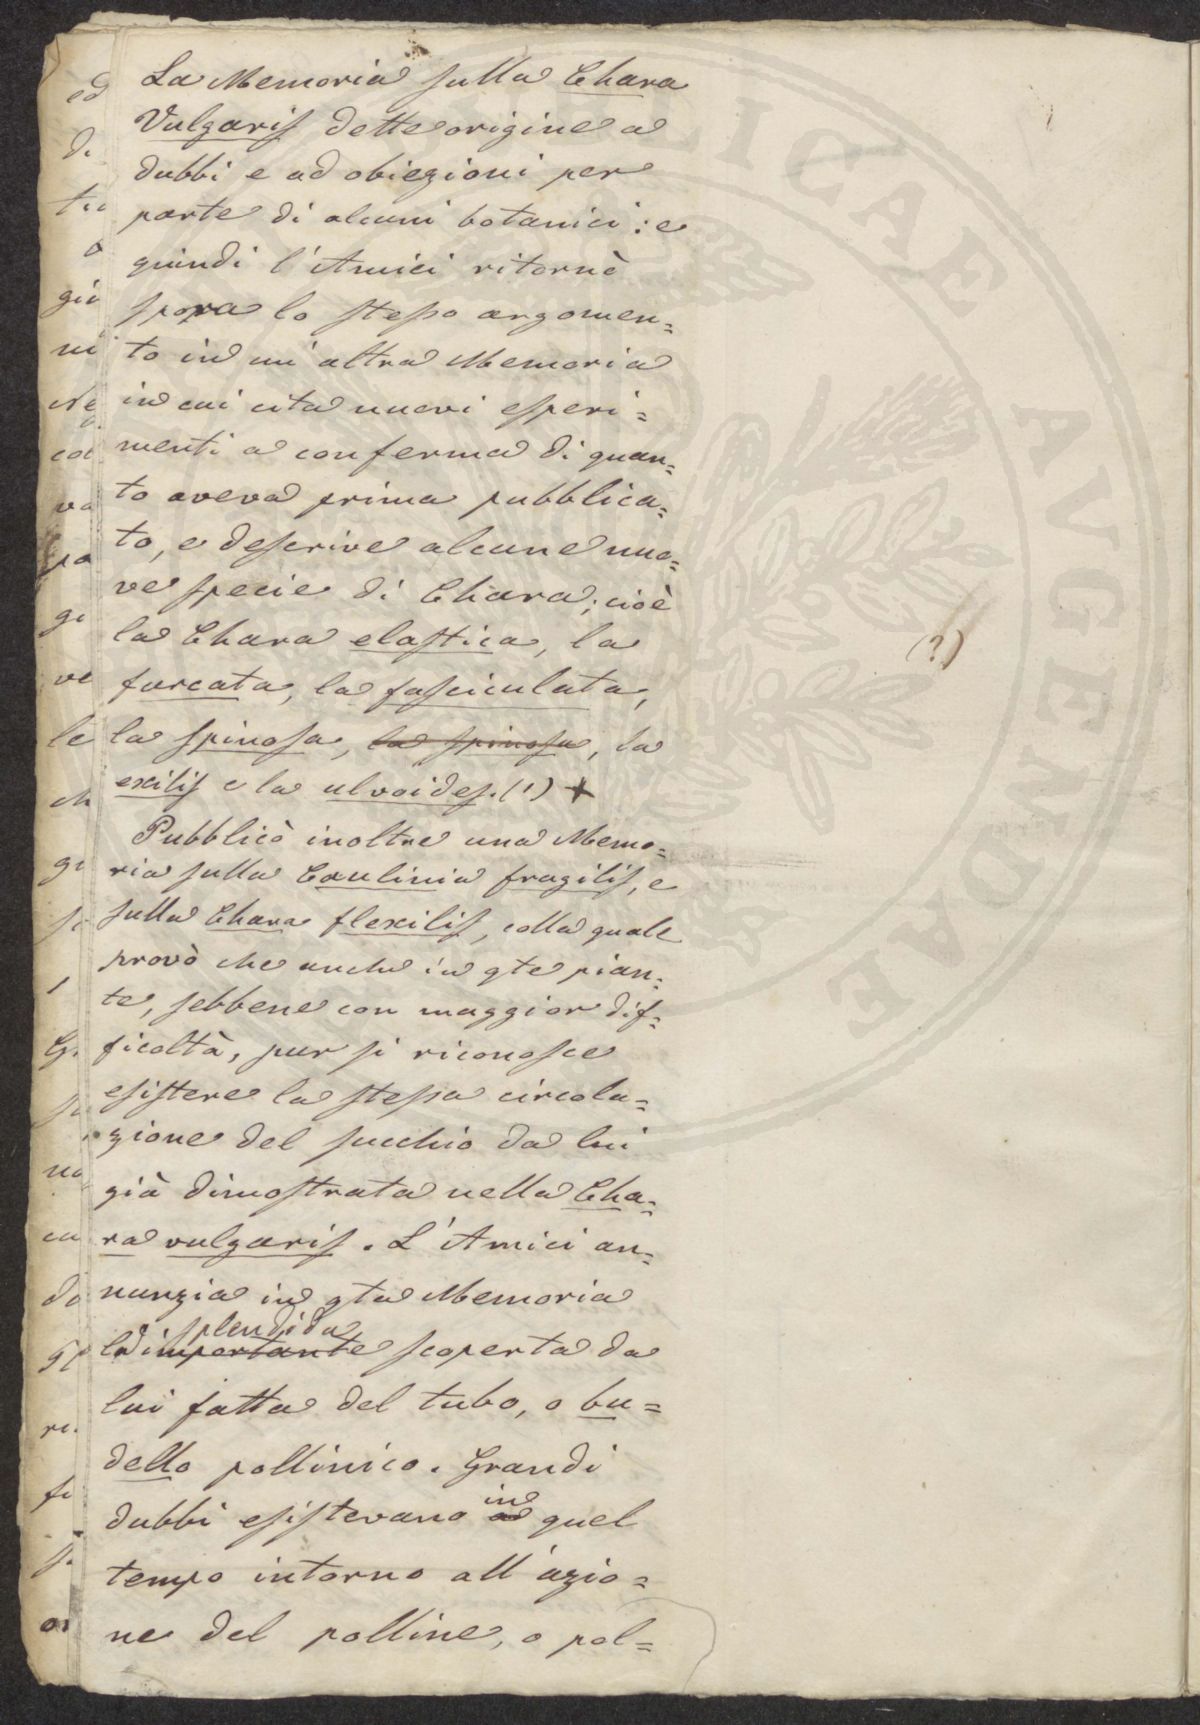 La Memoria sulla Chara
Vulgaris dette origine a
dubbi e ad obiezioni per
parte di alcuni botanici: e
quindi l'Amici ritornò
sopra lo stesso argomen=
to in un'altra Memoria
in cui cita nuovi esperi=
menti a conferma di quan=
to aveva prima pubblica=
to, e descrive alcune nuo=
ve specie di Chara; cioè
la Chara elastica, la
furcata, la fasciculata,
la spinosa, la spinosa, la
exilis e la ulvoides. (1) +
Pubblicò inoltre una Memo=
ria sulla Caulinia fragilis, e
sulla Chara flexilis, colla quale
provò che anche in qte pian=
te, sebbene con maggior dif=
ficoltà, pur si riconosce
esistere la stessa circola=
zione del succhio da lui
già dimostrata nella Cha=
ra vulgaris. L'Amici an=
nunzia in qta Memoria
splendida
la importante scoperta da
lui fatta del tubo, o bu=
dello pollinico. Grandi
dubbi esistevano in quel
tempo intorno all'azio=
ne del polline, o pol=
(?)
PUBLICAE AVGENDAE